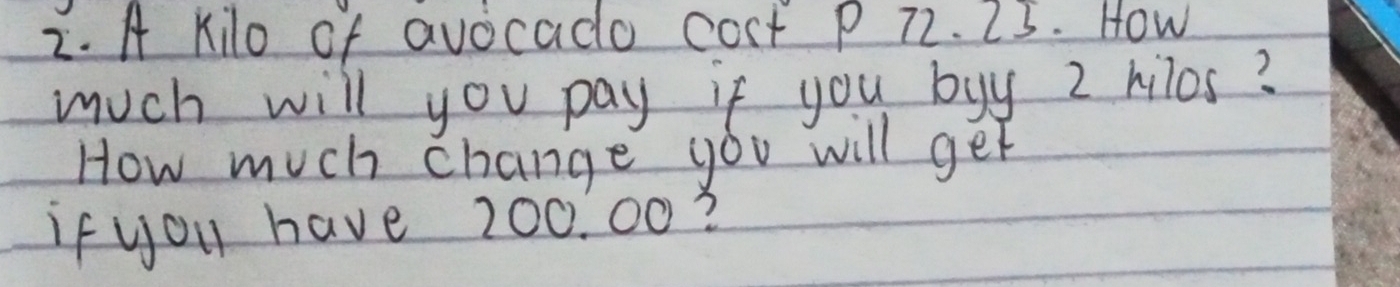 2. A Kilo of avocado cost P 72.25. How
much will you pay if you byy 2 kilos?
How much change you will get
if you have 200.00?